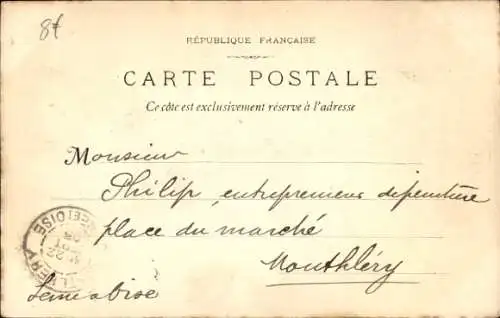 8f
RÉPUBLIQUE FRANÇAISE
CARTE POSTALE
Ce côté est exclusivement réservé à l'adresse
Monsieur
Philip, entrepreneur dipeinture
place du marché
Monthléry
Seine a Oise